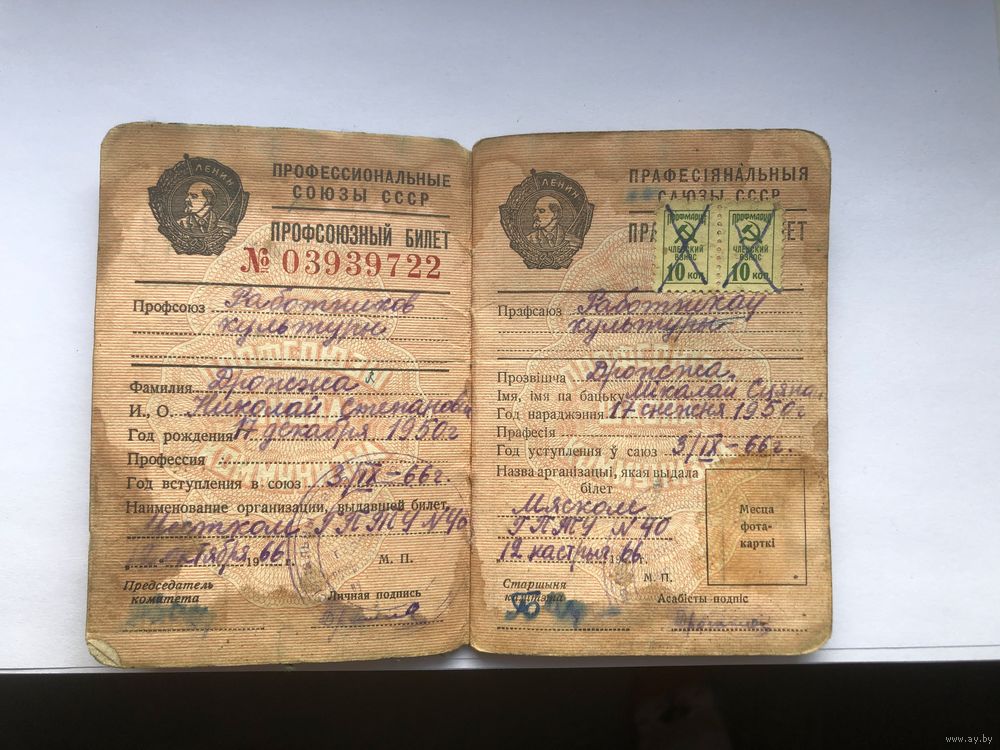 ЛЕНИН
ПРОФЕССИОНАЛЬНЫЕ
СОЮЗЫ СССР
ПРОФСОЮЗНЫЙ БИЛЕТ
№ 03939722
Профсоюз Работников
культуры
Фамилия Дрожжа
И., О. Николай Степанови
Год рождения 17 декабря 1950 г
Профессия
Год вступления в союз 3/IX-66 г.
Наименование организации, выдавшей билет
Местком ГПТУ N 40
12 октября 66 19 г.
М. П.
Председатель
комитета
Личная подпись
ЛЕНИН
ПРАФЕСІЯНАЛЬНЫЯ
САЮЗЫ СССР
ПРА ЕТ
ПРОФМАРКА
ЧЛЕНСКИЙ
ВЗНОС
10 КОП.
ПРОФМАРКА
ЧЛЕНСКИЙ
ВЗНОС
10 КОП.
Прафсаюз Работнікаў
культуры
Прозвішча Дрожжа
Імя, імя па бацьку Мікалай Сцяпан
Год нараджэння 17 снежня 1950 г
Прафесія
Год уступлення ў саюз 3/IX-66 г.
Назва арганізацыі, якая выдала
білет
Мяском
ГПТУ N 40
12 кастрыч. 66
М. П.
Месца
фота-
карткі
Старшыня
камітэта
Асабісты подпіс
www.ay.by